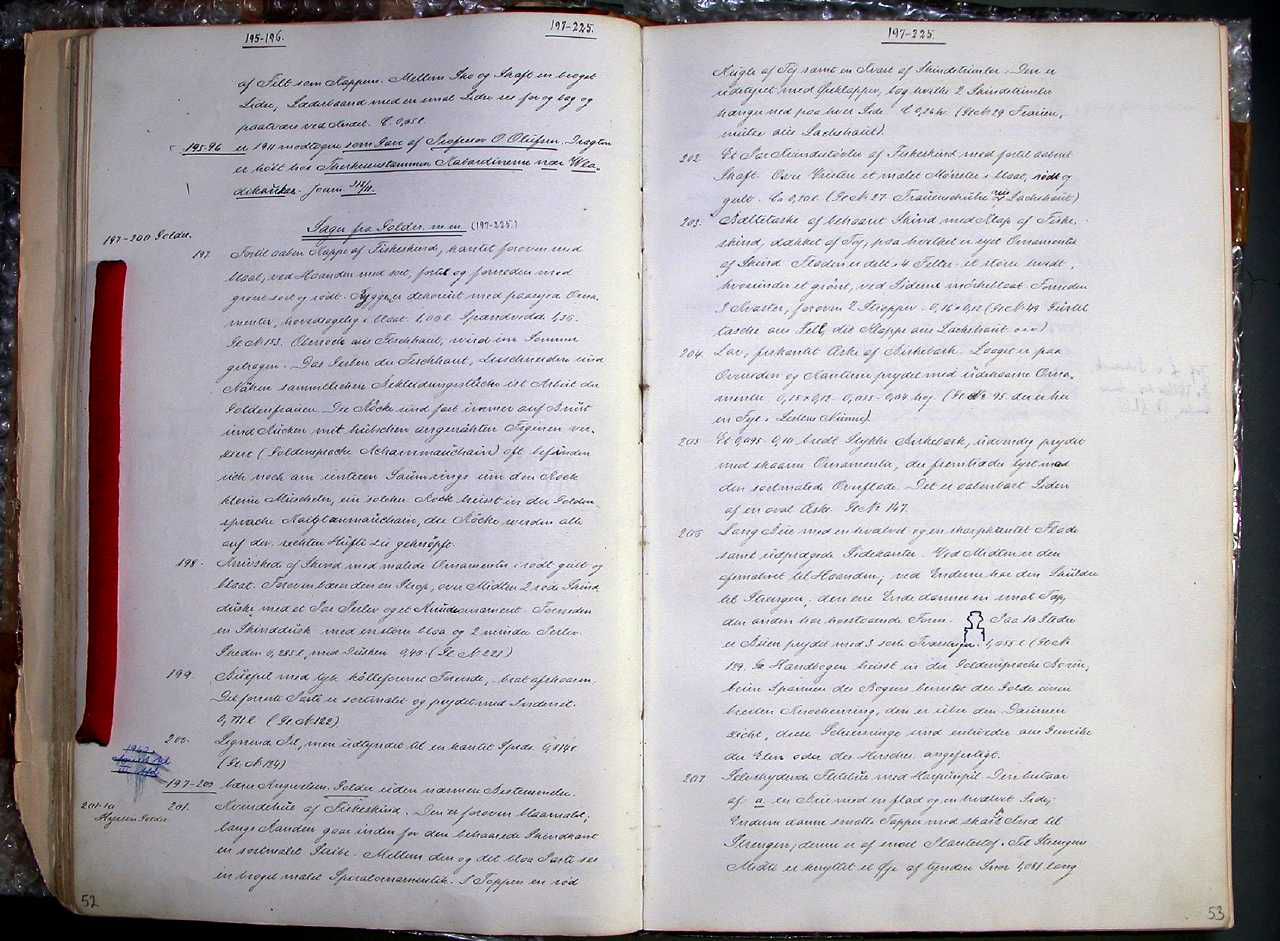 195-196.
197-225.
af Filt som Kappen. Mellem Sko og Skaft en broget
Lidse, Læderbaand med en smal Lidse ses for og bag og
paatværs ved Anklet. L 0,25 l.
195-96 er 1911 modtagne som Gave af Professor O. Olufsen. Dragten
er købt hos Tscherkesserstammen Kabardinerne nær Wla-
dikaukas. Journ
Sager fra Golder m.m. (197-225.)
197-200 Golder.
197. Fortil aaben Kappe af Fiskeskind, kantet foroven med
blaat, ved Haanden med sort, fortil og forneden med
grønt sort og rødt. Ryggen er dekoreret med paasyede Orna-
menter, hovedsagelig i blaat. 1,00 l. Spændvidde 1,36.
Gl. N. 153. Oberrock aus Fischhaut, wird im Sommer
getragen. Das Gerben der Fischhaut, Zuschneiden und
Nähen sämmtlicher Bekleidungsstücke ist Arbeit der
Goldenfrauen. Die Röcke sind fast immer auf Brust
und Rücken mit hübschen angenähten Figuren ver-
ziert (Goldensprache) oft befinden
sich noch am unteren Saum rings um den Rock
kleine Muscheln, ein solcher Rock heisst in der Golden-
sprache, die Röcke werden alle
auf der rechten Hüfte zu geknöpft.
198. Knivsked af Skind med malede Ornamenter i rødt gult og
blaat. Foroven bærer den en Strop, over Midten 2 røde Skind
duske med et Par Perler og et Ornament. Forneden
en Skinddusk med en større blaa og 2 mindre Perler.
Skeden 0,255 l., med Dusken 0,40. (Gl. N. 221)
199. Buepil med tyk kølleformet Forende, brat afskaaren.
Det forreste Parti er sortmalet og prydet med Indsnit.
0,771 l. (Gl. N. 122)
200. Lignende Pil, men udtyndet til en kantet Spids
(Gl. N. 124)
197-200 bære Angivelsen Golder uden nærmere Bestemmelse.
201-10
Golder.
201. Kvindehue af Fiskeskind. Den er foroven blaamalet;
langs Randen gaar inden for den behaarede Skindkant
en sortmalet Stribe. Mellem den og det blaa Parti ses
en broget malet Spiralornamentik. I Toppen en rød
52
197-225.
Kugle af Tøj samt en Kvast af Skindstrimler. Den er
udstyret med Øreklapper, bag hvilke 2 Skindstrimler
hænger ned paa hver Side. L 0,26 hv. (Gl. N. 29 Frauen-
mütze aus Lachshaut).
202. Et Par Kvindestøvler af Fiskeskind med fortil aabent
Skaft. Over Vristen et malet Mønster i blaat, rødt og
gult. Ca 0,20 l. (Gl. N. 27. Frauenschuhe aus Lachshaut)
203. Bæltetaske af behaaret Skind med Klap af Fiske-
skind, dækket af Tøj, paa hvilket er syet Ornamenter
af Skind. Fladen er delt i 4 Felter: et større hvidt,
hvorunder et grønt, ved Siderne mørkeblaat. Forneden
2 Kvaster, foroven 2 Stropper. 0,16 × 0,12 (Gl. N. 49 Gürtel
tasche aus Fell, die Klappe aus Lachshaut o s v)
204. Lav, firkantet Æske af Birkebark. Laaget er paa
Oversiden og Kanterne prydet med udskaarne Orna-
menter. 0,04 høj. (Gl. N. 95. der er her
en Syv i sidste Numre).
205. Et 0,095-0,10 bredt Stykke Birkebark, udvendig prydet
med skaarne Ornamenter, der fremtræder lyst mod
den sortmalede Overflade. Det er aabenbart Siden
af en oval Æske. Gl. N. 147.
206. Lang Bue med en hvælvet og en skarpkantet Flade
samt udprægede Sidekanter. Ved Midten er den
afsmalnet til Haanden; ved Enderne har den Skuldre
til Strengen, den ene Ende danner en smal Tap,
den anden har hosstaaende Form. Paa 10 Steder
er Buen prydet med 3 sorte Tværstreger. 1,055 l (Gl. N.
129. Ein Handbogen heisst in der Goldensprache Borin,
beim Spannen des Bogens benutzt der Golde einen
breiten Knochenring, den er über den Daumen
zieht, diese Schiessringe sind entweder aus Geweihe
der Elen oder des Hirsches angefertigt.
207. Selvskydende Fælde med Harpunpil. Den bestaar
af a. en Bue med en flad og en hvælvet Side;
Enderne danne smalle Tappe med skraat Sæde til
Strengen; denne er af snoet Plantetof. Til Strengens
Midte er knyttet et Øje af tyndere Snor 1,081 lang
53